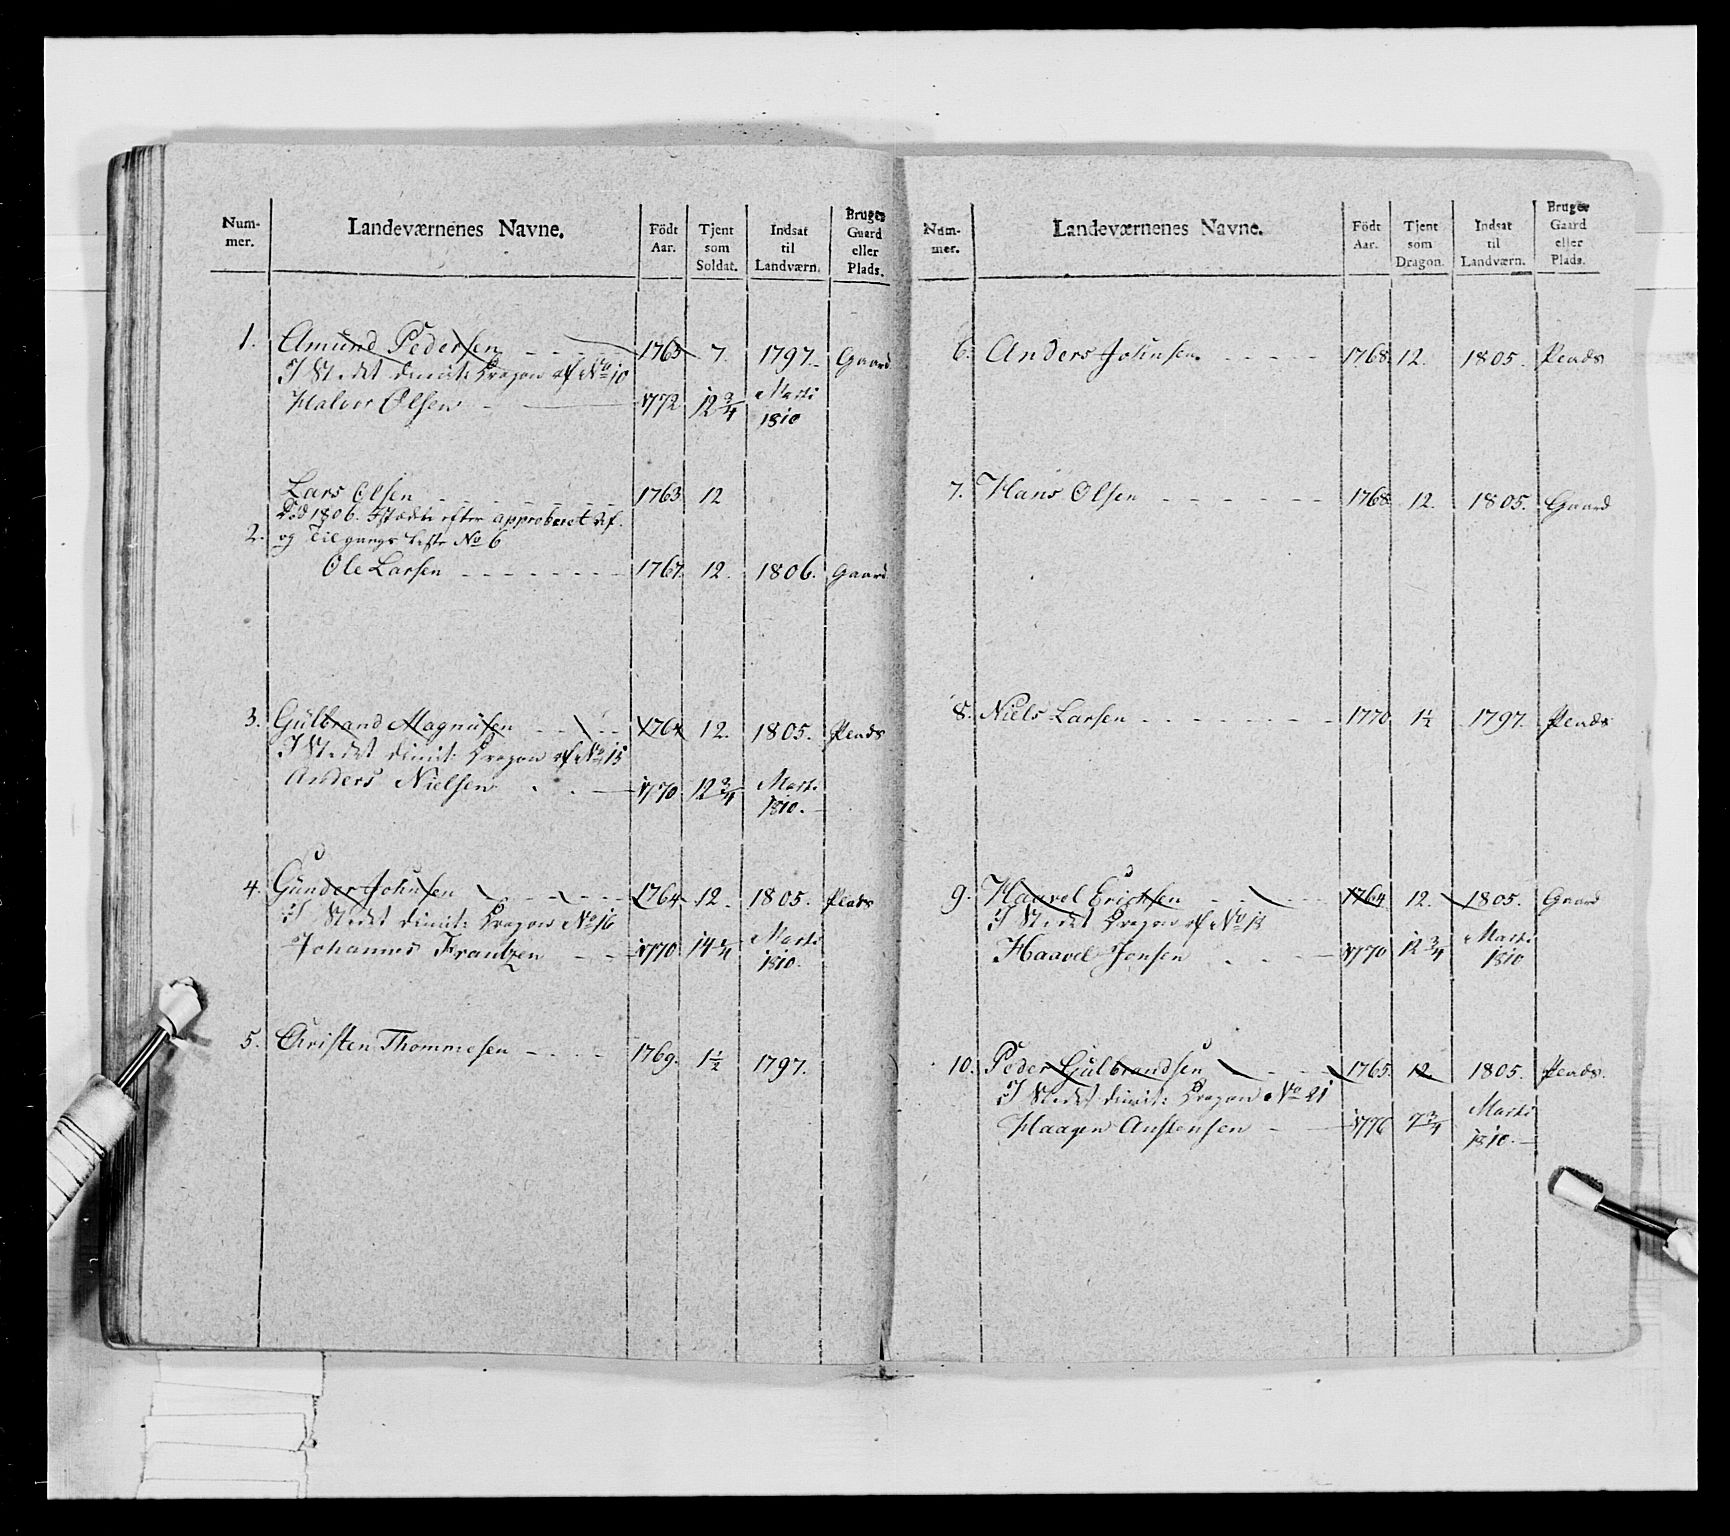 Num-
mer.
Landeværnenes Navne.
Födt
Aar.
Tjent
som
Soldat.
Indsat
til
Landværn.
Bruger
Gaard
eller
Plads.
1. Amund Pedersen 1765 7. 1797. Gaard
I Stedet dimit: Dragon af No 10
Halvor Olsen 1772 12 3/4 Marti
1810
Lars Olsen 1763 12
Död 1806. Istæden efter approberet Af.
2. og Tilgangs Liste No 6
Ole Larsen 1767. 12. 1806. Gaard
3. Gülbrand Magnüsen 1764 12. 1805. Plads
I Stedet dimit: Dragon af No 15
Anders Nielsen 1770 12 3/4 Marti
1810.
4. Günder Johnsen 1764 12. 1805. Plads
I Stedet dimit: Dragon No 16
Johannes Frantzen 1770 14 3/4 Marti
1810.
5. Christen Thommesen 1769. 1 1/2 1797.
Num-
mer.
Landeværnenes Navne.
Födt
Aar.
Tjent
som
Dragon.
Indsat
til
Landværn.
Bruger
Gaard
eller
Plads.
6. Anders Johnsen. 1768. 12. 1805. Plads
7. Hans Olsen 1768 12. 1805. Gaard
8. Niels Larsen 1770 1 1/2 1797. Plads
9. Haavel Ericksen 1764 12. 1805. Gaard
I Stedet Dragon af No 13
Haavel Jonsen 1770 12 3/4 Marti
1810
10. Peder Gülbrandsen 1765. 12. 1805. Plads.
I Stedet dimit: Dragon No 21
Haagen Anstensen 1776 7 3/4 Marti
1810.